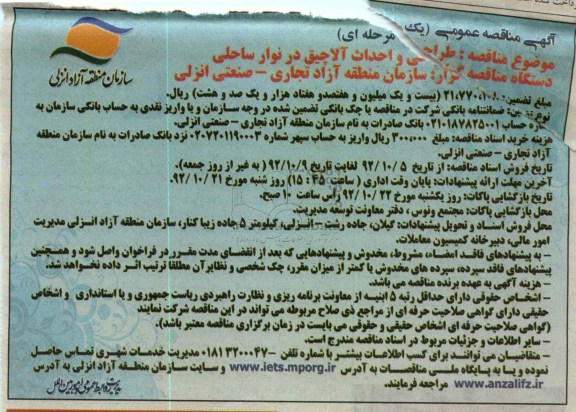 آگهی مناقصه عمومی (یک مرحله ای)
موضوع مناقصه: طراحی و احداث آلاچیق در نوار ساحلی
دستگاه مناقصه گزار: سازمان منطقه آزاد تجاری – صنعتی انزلی
سازمان منطقه آزاد انزلی
مبلغ تضمین: (بیست و یک میلیون و هفتصدو هفتاد هزار و یک صد و هشت) ریال.
نوع تضمین: ضمانتنامه بانکی شرکت در مناقصه یا چک بانکی تضمین شده در وجه سازمان و یا واریز نقدی به حساب بانکی سازمان به
شماره حساب ۰۲۱۰۱۸۷۸۲۵۰۰۱ بانک صادرات به نام سازمان منطقه آزاد تجاری – صنعتی انزلی.
هزینه خرید اسناد مناقصه: مبلغ ۳۰۰،۰۰۰ ریال واریز به حساب سپهر شماره ۰۲۰۷۲۲۰۱۱۹۰۰۰۳ نزد بانک صادرات به نام سازمان منطقه
آزاد تجاری – صنعتی انزلی.
تاریخ فروش اسناد مناقصه: از تاریخ ۹۲/۱۰/۵ لغایت تاریخ ۹۲/۱۰/۹ (به غیر از روز جمعه).
آخرین مهلت ارائه پیشنهادات: پایان وقت اداری (ساعت ۱۵:۴۵) روز شنبه مورخ ۹۲/۱۰/۲۱.
تاریخ بازگشایی پاکات: روز یکشنبه مورخ ۹۲/۱۰/۲۲ رأس ساعت ۱۰ صبح.
محل بازگشایی پاکات: مجتمع ونوس، دفتر معاونت توسعه مدیریت.
محل فروش اسناد و تحویل پیشنهادات: گیلان، جاده رشت – انزلی، کیلومتر ۵ جاده زیبا کنار، سازمان منطقه آزاد انزلی مدیریت
امور مالی، دبیرخانه کمیسیون معاملات.
– به پیشنهادهای فاقد امضاء، مشروط، مخدوش و پیشنهادهایی که بعد از انقضای مدت مقرر در فراخوان واصل شود و همچنین
پیشنهادهای فاقد سپرده، سپرده های مخدوش یا کمتر از میزان مقرر، چک شخصی و نظایر آن مطلقا ترتیب اثر داده نخواهد شد.
– هزینه آگهی به عهده برنده مناقصه می باشد.
– اشخاص حقوقی دارای حداقل رتبه ۵ ابنیه از معاونت برنامه ریزی و نظارت راهبردی ریاست جمهوری و یا استانداری و اشخاص
حقیقی دارای گواهی صلاحیت حرفه ای از مراجع ذی صلاح مربوطه می تواند در این مناقصه شرکت نمایند
(گواهی صلاحیت حرفه ای اشخاص حقیقی و حقوقی می بایست در زمان برگزاری مناقصه معتبر باشد).
– سایر اطلاعات و جزئیات مربوط در اسناد مناقصه مندرج است.
– متقاضیان می توانند برای کسب اطلاعات بیشتر با شماره تلفن ۰۱۸۱۳۲۰۰۰۴۷ مدیریت خدمات شهری تماس حاصل
نموده و یا به پایگاه ملی مناقصات به آدرس www.iets.mporg.ir و سایت سازمان منطقه آزاد انزلی به آدرس
www.anzalifz.ir مراجعه فرمایند.